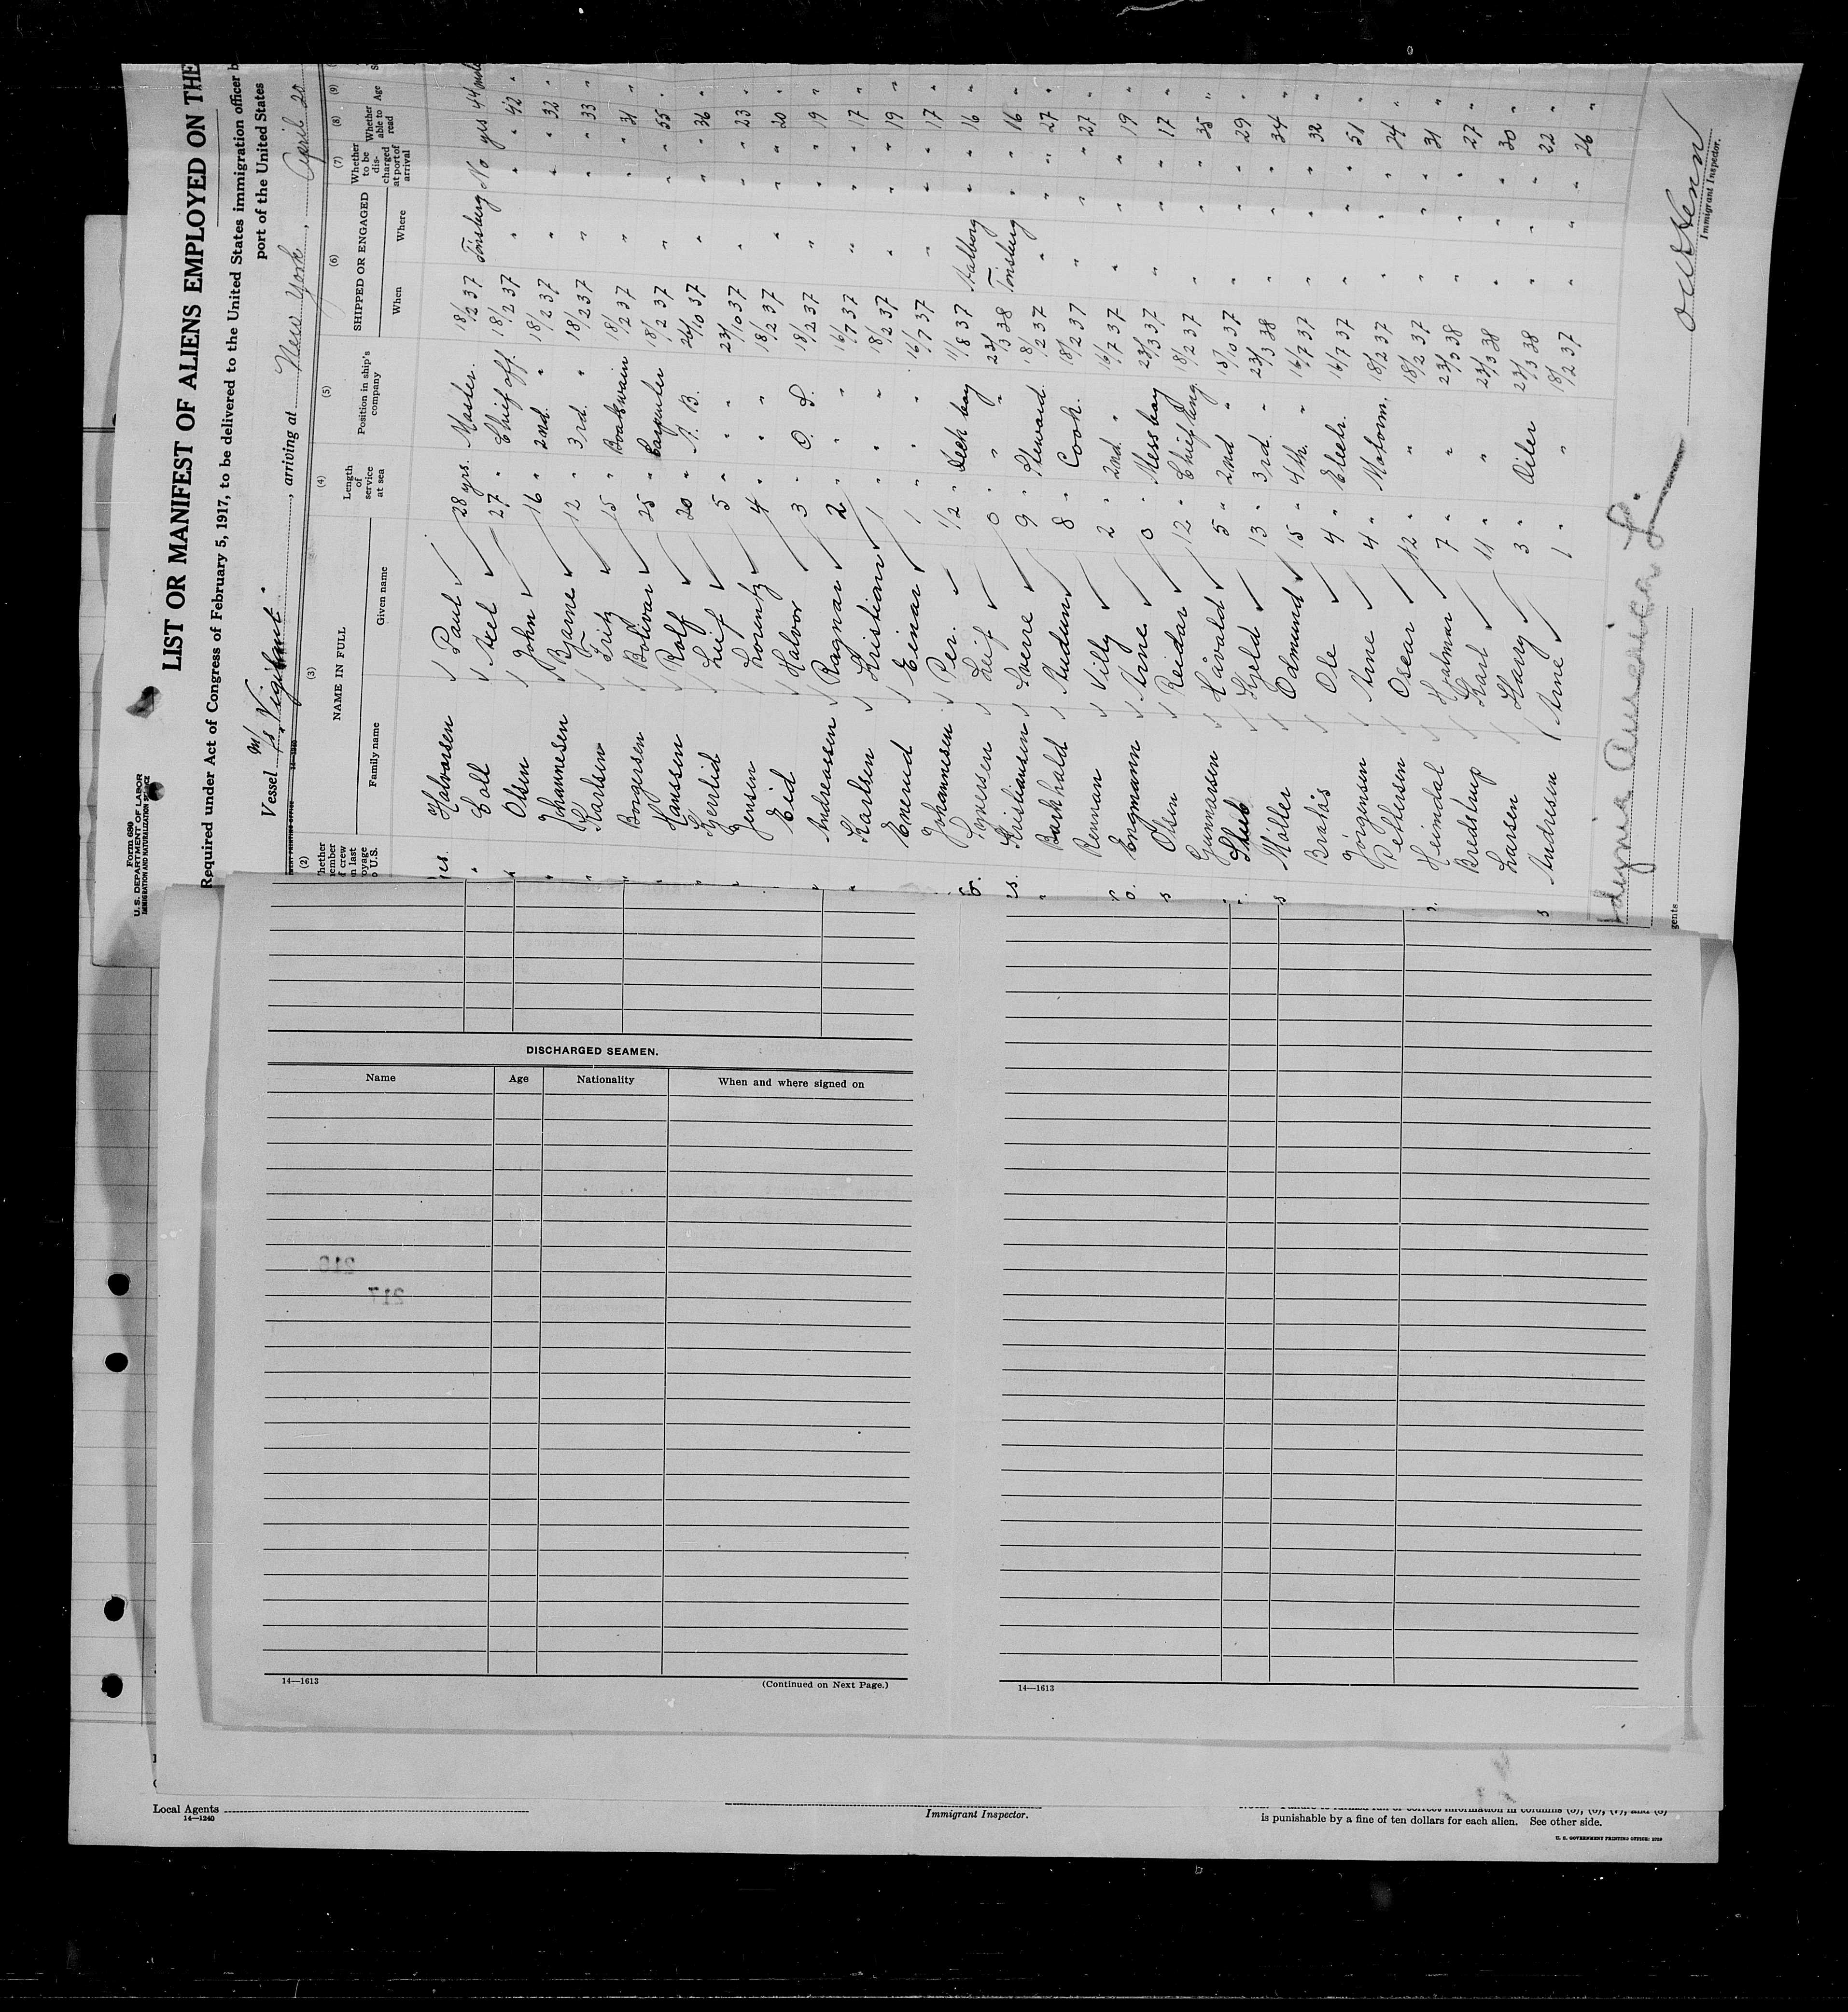 Form 680
U.S. DEPARTMENT OF LABOR
IMMIGRATION AND NATURALIZATION SERVICE
LIST OR MANIFEST OF ALIENS EMPLOYED ON THE
Required under Act of Congress of February 5, 1917, to be delivered to the United States immigration officer b
port of the United States
Vessel M/s Vigilant, arriving at New York, April 20
(2) (3) (4) (5) (6) (7) (8) (9)
NAME IN FULL SHIPPED OR ENGAGED
Family name Given name Length of service at sea Position in ship's company When Where Whether to be discharged at port of arrival Whether able to read Age
Halvorsen Paul 28 yrs. Master. 18/2 37 Tönsberg No yes 44 male
Coll Axel 27 " Chief off. 18/2 37 " " " 42 "
Olsen John 16 " 2nd. " 18/2 37 " " " 32 "
Johannesen Bjarne 12 " 3rd. " 18/2 37 " " " 33 "
Karlsen Fritz 15 " Boatswain 18/2 37 " " " 31 "
Borgersen Bolivar 25 " Carpenter 18/2 37 " " " 55 "
Hanssen Rolf 20 " A. B. 26/10 37 " " " 36 "
Leif 5 " " 23/10 37 " " " 23 "
Jensen Lorentz 4 " " 18/2 37 " " " 20 "
Eid Halvor 3 " O. S. 18/2 37 " " " 19 "
Andreasen Ragnar 2 " " 16/7 37 " " " 17 "
Karlsen Kristian 1 " " 18/2 37 " " " 19 "
Enerud Einar 1 " " 16/7 37 " " " 17 "
Johannesen Per. 1/2 " Deck boy 11/8 37 Aalborg " " 16 "
Syversen Leif 0 " " 23/3 38 Tönsberg " " 16 "
Kristiansen Sverre 9 " Steward. 18/2 37 " " " 27 "
Barkhald Audun 8 " Cook. 18/2 37 " " " 27 "
Rennan Villy 2 " 2nd. " 16/7 37 " " " 19 "
Engmann Arne 0 " Messboy 23/3 37 " " " 17 "
Olsen Reidar 12 " Chief Eng. 18/2 37 " " " 35 "
Gunnarsen Håvald 5 " 2nd " 15/10 37 " " " 29 "
Kjeld 13 " 3rd. " 23/3 38 " " " 34 "
Möller Edmund 15 " 4th. " 16/7 37 " " " 32 "
Ole 4 " Electr. 16/7 37 " " " 51 "
Jörgensen Arne 4 " Motorm. 18/2 37 " " " 24 "
Pettersen Oscar 12 " " 18/2 37 " " " 31 "
Heimdal Hjalmar 7 " " 23/3 38 " " " 27 "
Bredstrup Karl 11 " " 23/3 38 " " " 30 "
Larsen Harry 3 " Oiler 23/3 38 " " " 22 "
Andresen Arne 1 " " 18/2 37 " " " 26 "
America L.
Immigrant Inspector.
DISCHARGED SEAMEN.
Name Age Nationality When and where signed on
216
217
14—1613 (Continued on Next Page.) 14—1613
Local Agents
14—1240
Immigrant Inspector.
is punishable by a fine of ten dollars for each alien. See other side.
U. S. GOVERNMENT PRINTING OFFICE: 1929